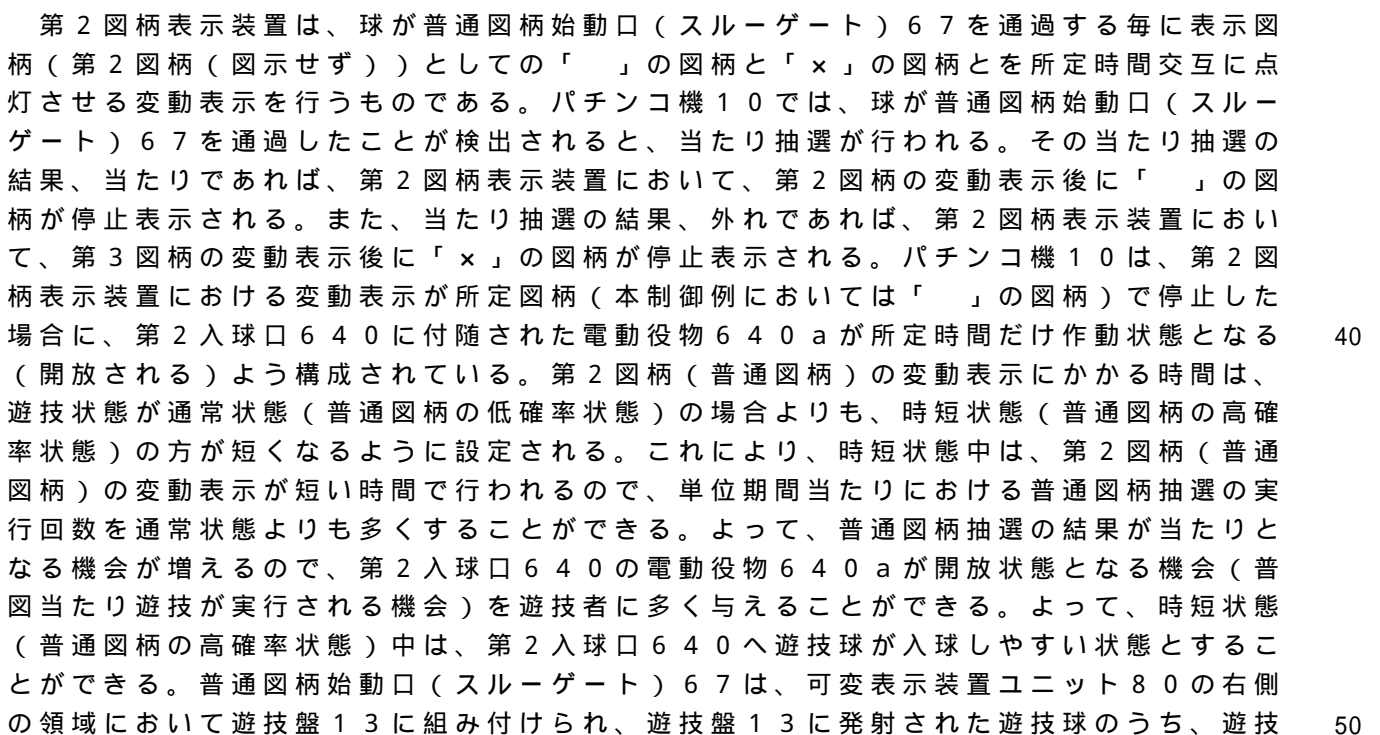 第２図柄表示装置は、球が普通図柄始動口（スルーゲート）６７を通過する毎に表示図
柄（第２図柄（図示せず））としての「　」の図柄と「×」の図柄とを所定時間交互に点
灯させる変動表示を行うものである。パチンコ機１０では、球が普通図柄始動口（スルー
ゲート）６７を通過したことが検出されると、当たり抽選が行われる。その当たり抽選の
結果、当たりであれば、第２図柄表示装置において、第２図柄の変動表示後に「　」の図
柄が停止表示される。また、当たり抽選の結果、外れであれば、第２図柄表示装置におい
て、第３図柄の変動表示後に「×」の図柄が停止表示される。パチンコ機１０は、第２図
柄表示装置における変動表示が所定図柄（本制御例においては「　」の図柄）で停止した
場合に、第２入球口６４０に付随された電動役物６４０ａが所定時間だけ作動状態となる　40
（開放される）よう構成されている。第２図柄（普通図柄）の変動表示にかかる時間は、
遊技状態が通常状態（普通図柄の低確率状態）の場合よりも、時短状態（普通図柄の高確
率状態）の方が短くなるように設定される。これにより、時短状態中は、第２図柄（普通
図柄）の変動表示が短い時間で行われるので、単位期間当たりにおける普通図柄抽選の実
行回数を通常状態よりも多くすることができる。よって、普通図柄抽選の結果が当たりと
なる機会が増えるので、第２入球口６４０の電動役物６４０ａが開放状態となる機会（普
図当たり遊技が実行される機会）を遊技者に多く与えることができる。よって、時短状態
（普通図柄の高確率状態）中は、第２入球口６４０へ遊技球が入球しやすい状態とするこ
とができる。普通図柄始動口（スルーゲート）６７は、可変表示装置ユニット８０の右側
の領域において遊技盤１３に組み付けられ、遊技盤１３に発射された遊技球のうち、遊技　50